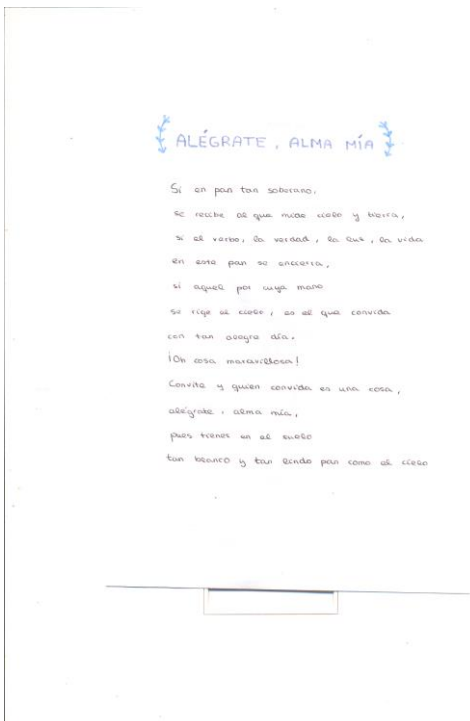 ALÉGRATE, ALMA MÍA
Si en pan tan soberano,
se recibe al que mide cielo y tierra,
si el verbo, la verdad, la luz, la vida
en este pan se encierra,
si aquel por cuya mano
se rige el cielo, es el que convida
con tan alegre día.
¡Oh cosa maravillosa!
Convite y quien convida es una cosa,
alégrate, alma mía,
pues tienes en el suelo
tan blanco y tan lindo pan como el cielo